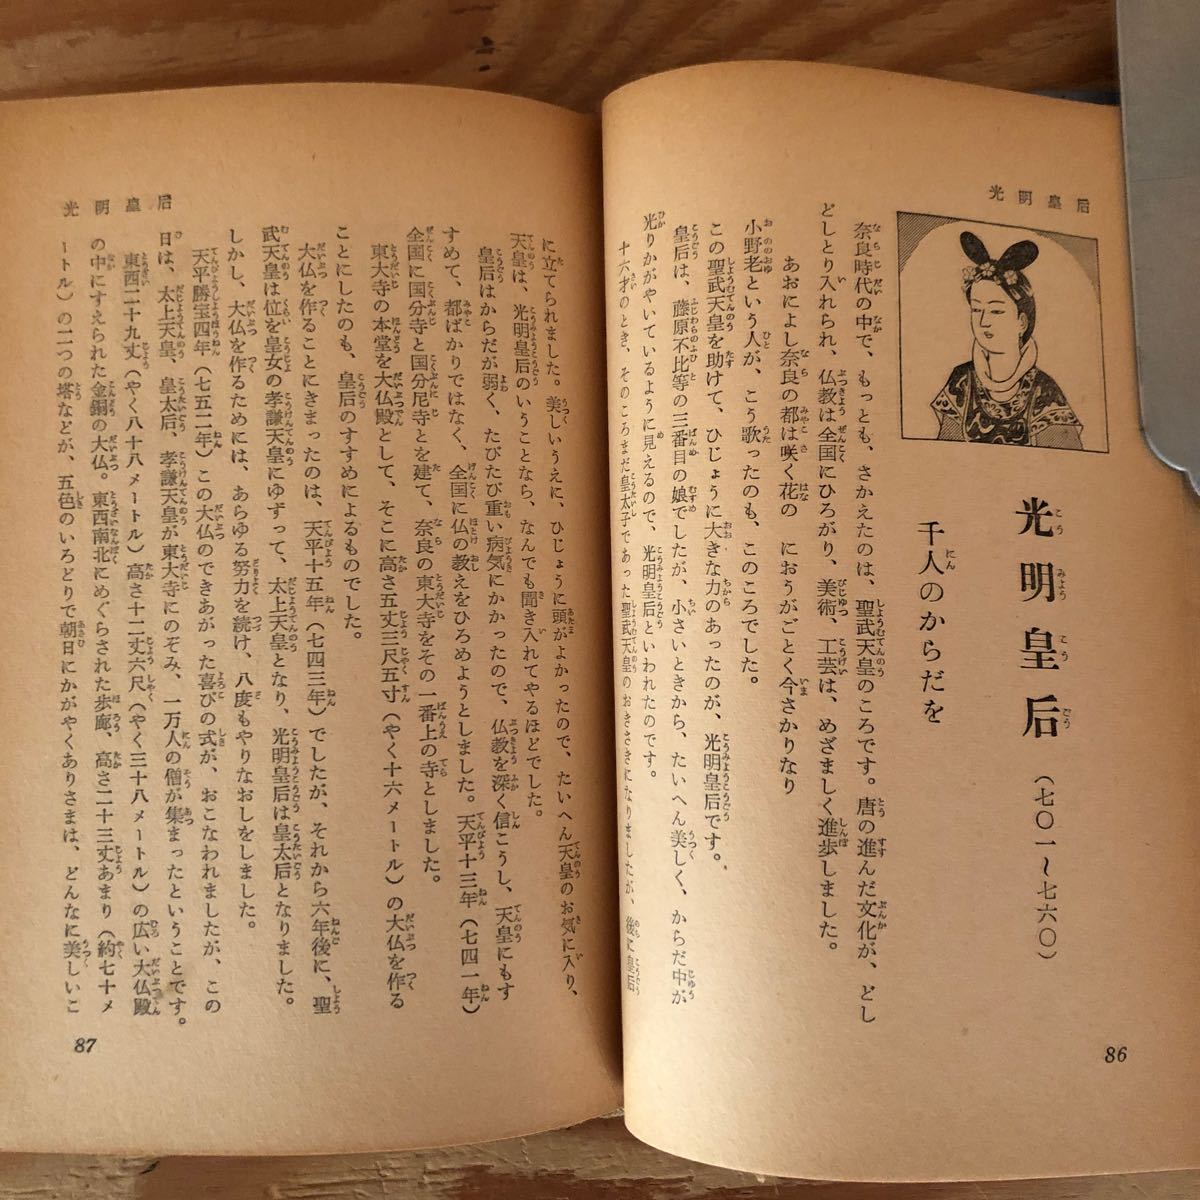 光明皇后
光明皇后（七〇一〜七六〇）
千人のからだを
奈良時代の中で、もっとも、さかえたのは、聖武天皇のころです。唐の進んだ文化が、どし
どしとり入れられ、仏教は全国にひろがり、美術、工芸は、めざましく進歩しました。
あおによし奈良の都は咲く花の　におうがごとく今さかりなり
小野老という人が、こう歌ったのも、このころでした。
この聖武天皇を助けて、ひじょうに大きな力のあったのが、光明皇后です。
皇后は、藤原不比等の三番目の娘でしたが、小さいときから、たいへん美しく、からだ中が
光りかがやいているように見えるので、光明皇后といわれたのです。
十六才のとき、そのころまだ皇太子であった聖武天皇のおきさきになりましたが、後に皇后
86
光明皇后
に立てられました。美しいうえに、ひじょうに頭がよかったので、たいへん天皇のお気に入り、
天皇は、光明皇后のいうことなら、なんでも聞き入れてやるほどでした。
皇后はからだが弱く、たびたび重い病気にかかったので、仏教を深く信こうし、天皇にもす
すめて、都ばかりではなく、全国に仏の教えをひろめようとしました。天平十三年（七四一年）
全国に国分寺と国分尼寺とを建て、奈良の東大寺をその一番上の寺としました。
東大寺の本堂を大仏殿として、そこに高さ五丈三尺五寸（やく十六メートル）の大仏を作る
ことにしたのも、皇后のすすめによるものでした。
大仏を作ることにきまったのは、天平十五年（七四三年）でしたが、それから六年後に、聖
武天皇は位を皇女の孝謙天皇にゆずって、太上天皇となり、光明皇后は皇太后となりました。
しかし、大仏を作るためには、あらゆる努力を続け、八度もやりなおしをしました。
天平勝宝四年（七五二年）この大仏のできあがった喜びの式が、おこなわれましたが、この
日は、太上天皇、皇太后、孝謙天皇が東大寺にのぞみ、一万人の僧が集まったということです。
東西二十九丈（やく八十八メートル）高さ十二丈六尺（やく三十八メートル）の広い大仏殿
の中にすえられた金銅の大仏。東西南北にめぐらされた歩廊、高さ二十三丈あまり（約七十メ
ートル）の二つの塔などが、五色のいろどりで朝日にかがやくありさまは、どんなに美しいこ
87